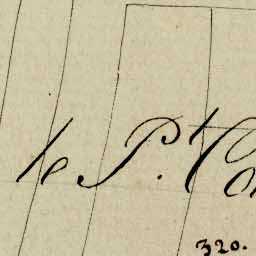 le P.t Co
320.